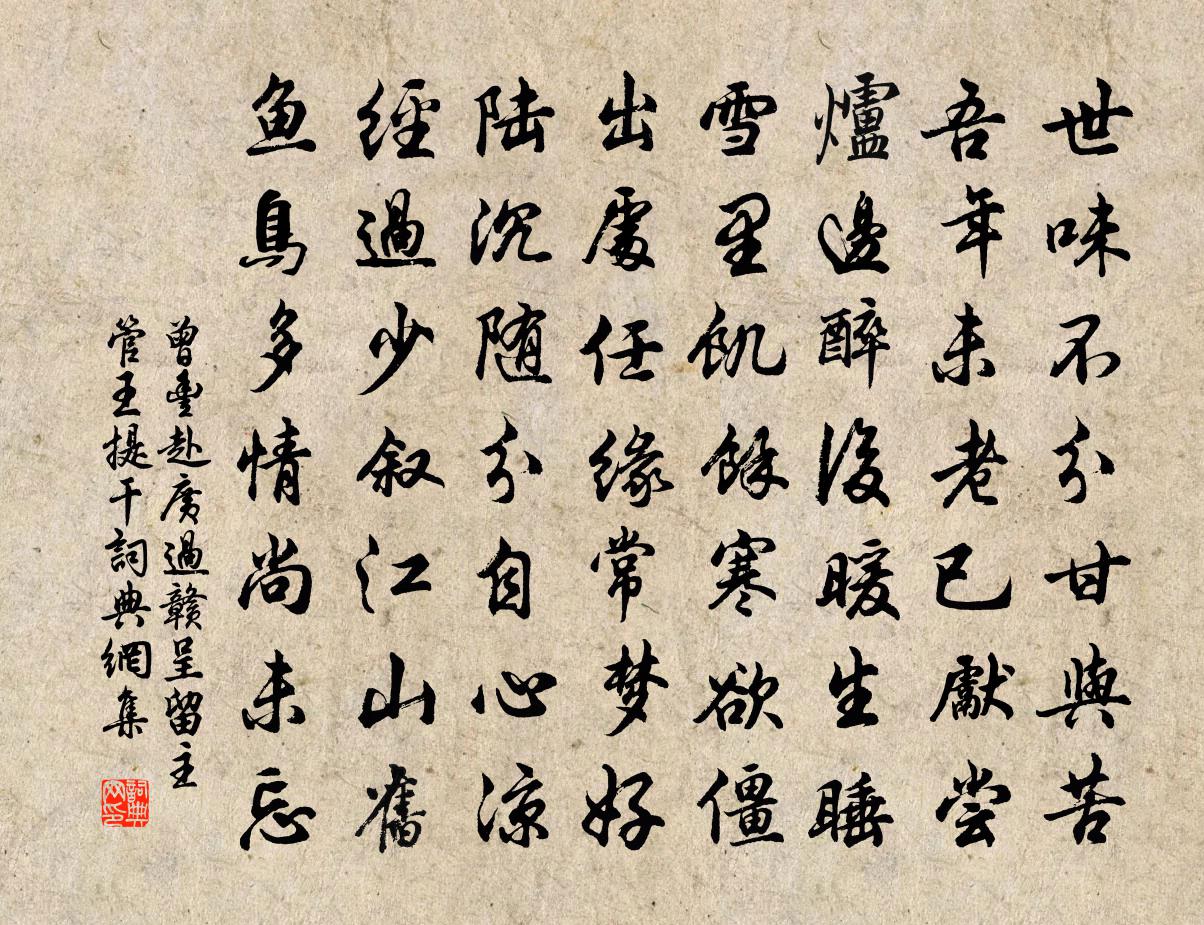 世味不分甘與苦
吾年未老已獻尝
爐邊醉後暖生睡
雪里飢餘寒欲僵
出處任缘常梦好
陆沉随分自心凉
經過少叙江山舊
鱼鳥多情尚未忘
曾豊赴廣過赣呈留主
管王提干詞典網集
詞典
网印